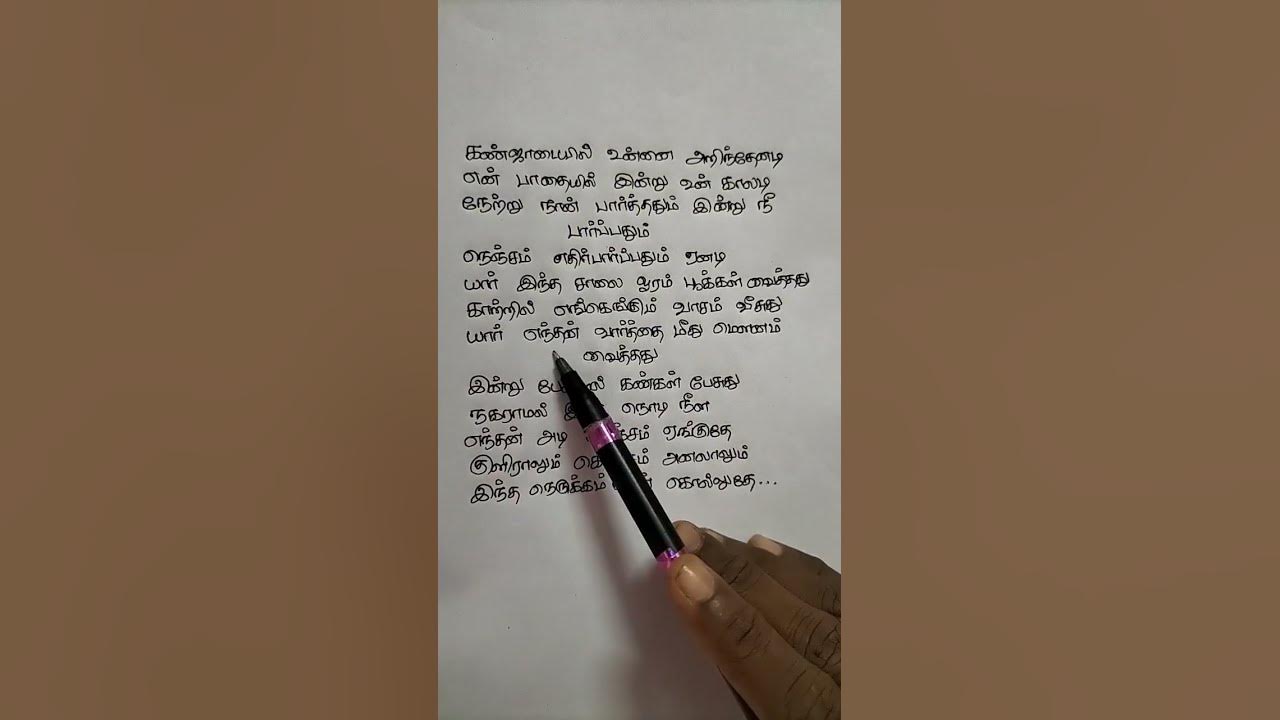 கண்ஜாடையில் உன்னை அறிந்தேனடி
என் பாதையில் இன்று உன் காலடி
நேற்று நான் பார்த்ததும் இன்று நீ
பார்ப்பதும்
நெஞ்சம் எதிர்பார்ப்பதும் ஏனடி
யார் இந்த சாலை ஓரம் பூக்கள் வைத்தது
காற்றில் எங்கெங்கும் வாசம் வீசுது
யார் எந்தன் வார்த்தை மீது மௌனம்
வைத்தது
இன்று கண்கள் பேசுது
நகராமல் நொடி நீள
எந்தன் அடி ஏங்குதே
குளிராலும் அனலாலும்
இந்த நெருக்கம் கொல்லுதே...